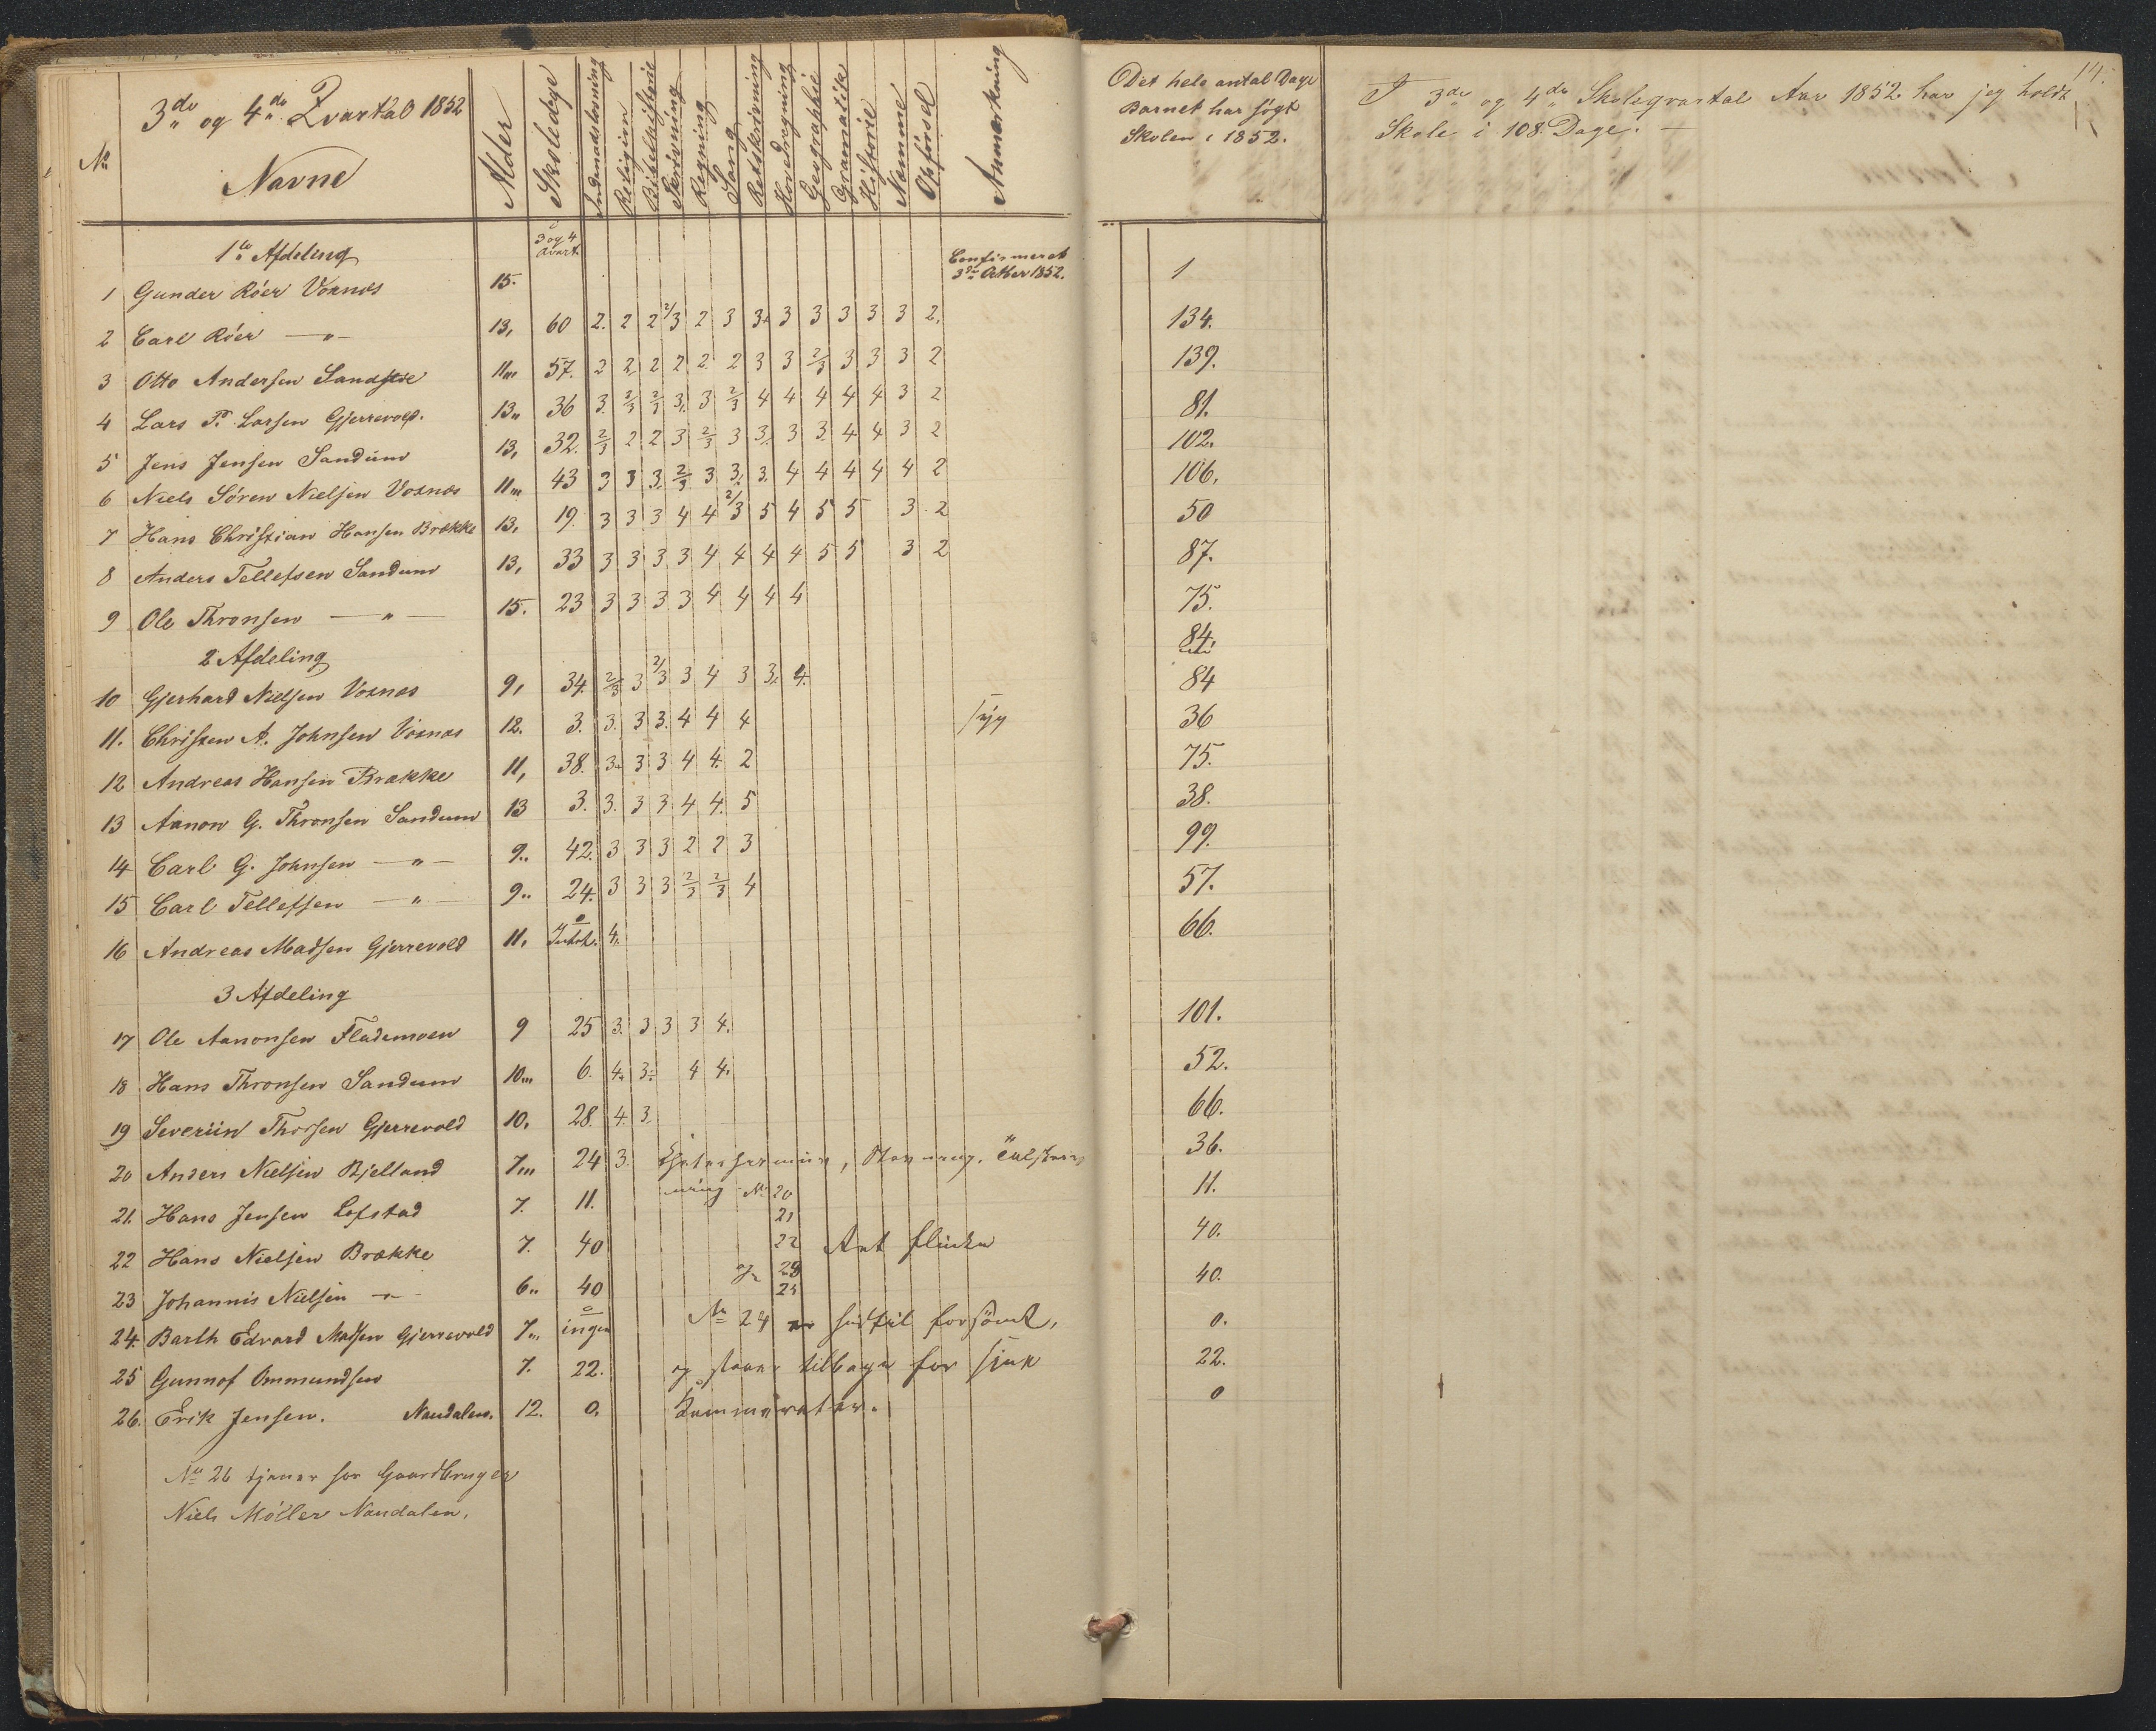 3de og 4de Qvartal 1852
No
Navne
Alder
Skoledage
Indenadslæsning
Religion
Bibelhistorie
Skrivning
Regning
Sang
Retskrivning
Hovedregning
Geographie
Gramatikk
Historie
Nemme
Opførsel
Anmærkning
Det hele antal Dage
Barnet har søgt
Skolen i 1852.
14.
I 3de og 4de Skoleqvartal Aar 1852 har jeg holdt
Skole i 108 Dage. —
1te Afdeling
3 og 4 Qvart.
1 Gunder Röer Voxnæs 15. Confirmeret 3die Octber 1852. 1
2 Carl Röer — " — 13, 60 2. 2 2 2/3 2 3 3. 3 3 3 3 3 2, 134.
3 Otto Andersen Sandstøe 11,,, 57. 2 2 2 2 2 2 3 3 2/3 3 3 3 2 139.
4 Lars P. Larsen Gjerrevold. 13,, 36 3. 2/3 2/3 3. 3 2/3 4 4 4 4 4 3 2 81.
5 Jens Jensen Sandum 13, 32. 2/3 2 2 3 2/3 3 3. 3 3. 4 4 3 2 102.
6 Niels Sören Nielsen Voxnæs 11,,, 43 3 3 3. 2/3 3 3. 3. 4 4 4 4 4 2 106.
7 Hans Christian Hansen Brække 13, 19. 3 3 3 4 4 2/3 5 4 5 5 3 2 50
8 Anders Tellefsen Sandum 13, 33 3 3 3 3 4 4 4 4 5 5 3 2 87.
9 Ole Thronsen — " — 15. 23 3 3 3 3 4 4 4 4 75.
2 Afdeling 84.
10 Gjerhard Nielsen Voxnæs 9, 34. 2/3 3 2/3 3 4 3 3. 4. 84
11. Christen A. Johnsen Voxnæs 12. 3. 3. 3 3. 4 4 4 syg 36
12 Andreas Hansen Brække 11, 38. 3. 3 3 4 4. 2 75.
13 Aanon G. Thronsen Sandum 13 3. 3. 3 3 4 4. 5 38.
14 Carl G. Johnsen — " — 9.. 42. 3 3 3 2 2 3 99.
15 Carl Tellefsen — " — 9.. 24. 3 3 3 2/3 2/3 4 57.
16 Andreas Madsen Gjerrevold 11, 4. 66.
3 Afdeling
17 Ole Aanonsen Flademoen 9 25 3. 3 3 3 4. 101.
18 Hans Thronsen Sandum 10,,, 6. 4. 3. 4 4. 52.
19 Severiin Thorsen Gjerrevold 10. 28. 4. 3. 66.
20 Anders Nielsen Bjelland 7,,, 24 3. 36.
21. Hans Jensen Lofstad 7. 11. No 20 21 11.
22 Hans Nielsen Brække 7. 40 22 Art flinke 40.
23 Johannis Nielsen — " — 6,, 40 25 40.
24. Barth Edvard Madsen Gjerrevold 7,,, ingen No 24 er hidtil forsömt, 0.
25 Gunnof Ommundsen 7. 22. og staaer tilbage for sine 22.
26. Erik Jensen. Naudalen. 12. 0. Kammerater. 0
No 26 tjener hos Gaardbruger
Niels Möller Naudalen.